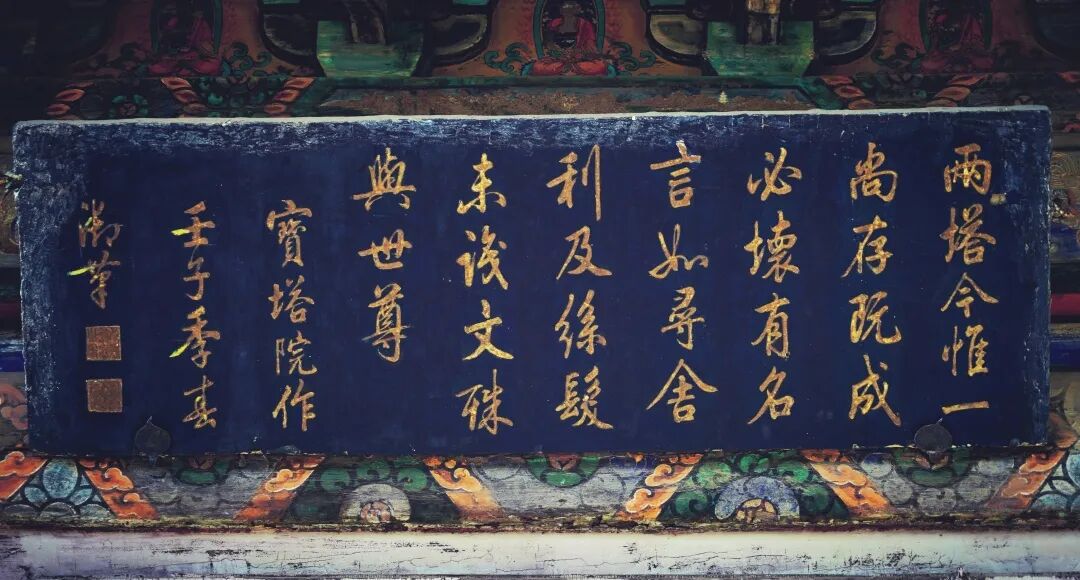 兩塔今惟一
尚存既成
必壞有名
言如尋舍
利及絲髮
未識文殊
與世尊
寶塔院作
壬午季春
御筆